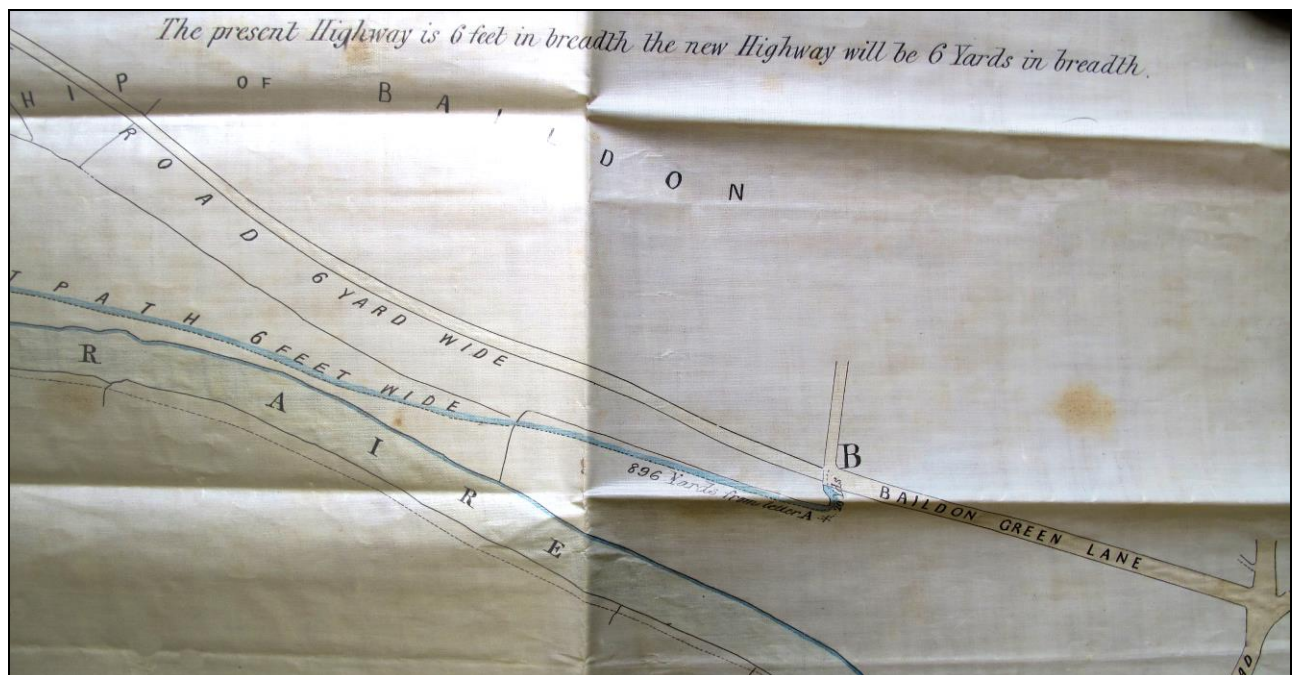 The present Highway is 6 feet in breadth the new Highway will be 6 Yards in breadth.
HIP OF BAILDON
ROAD 6 YARD WIDE
T PATH 6 FEET WIDE
R AIRE
896 Yards from letter A
B
BAILDON GREEN LANE
AD